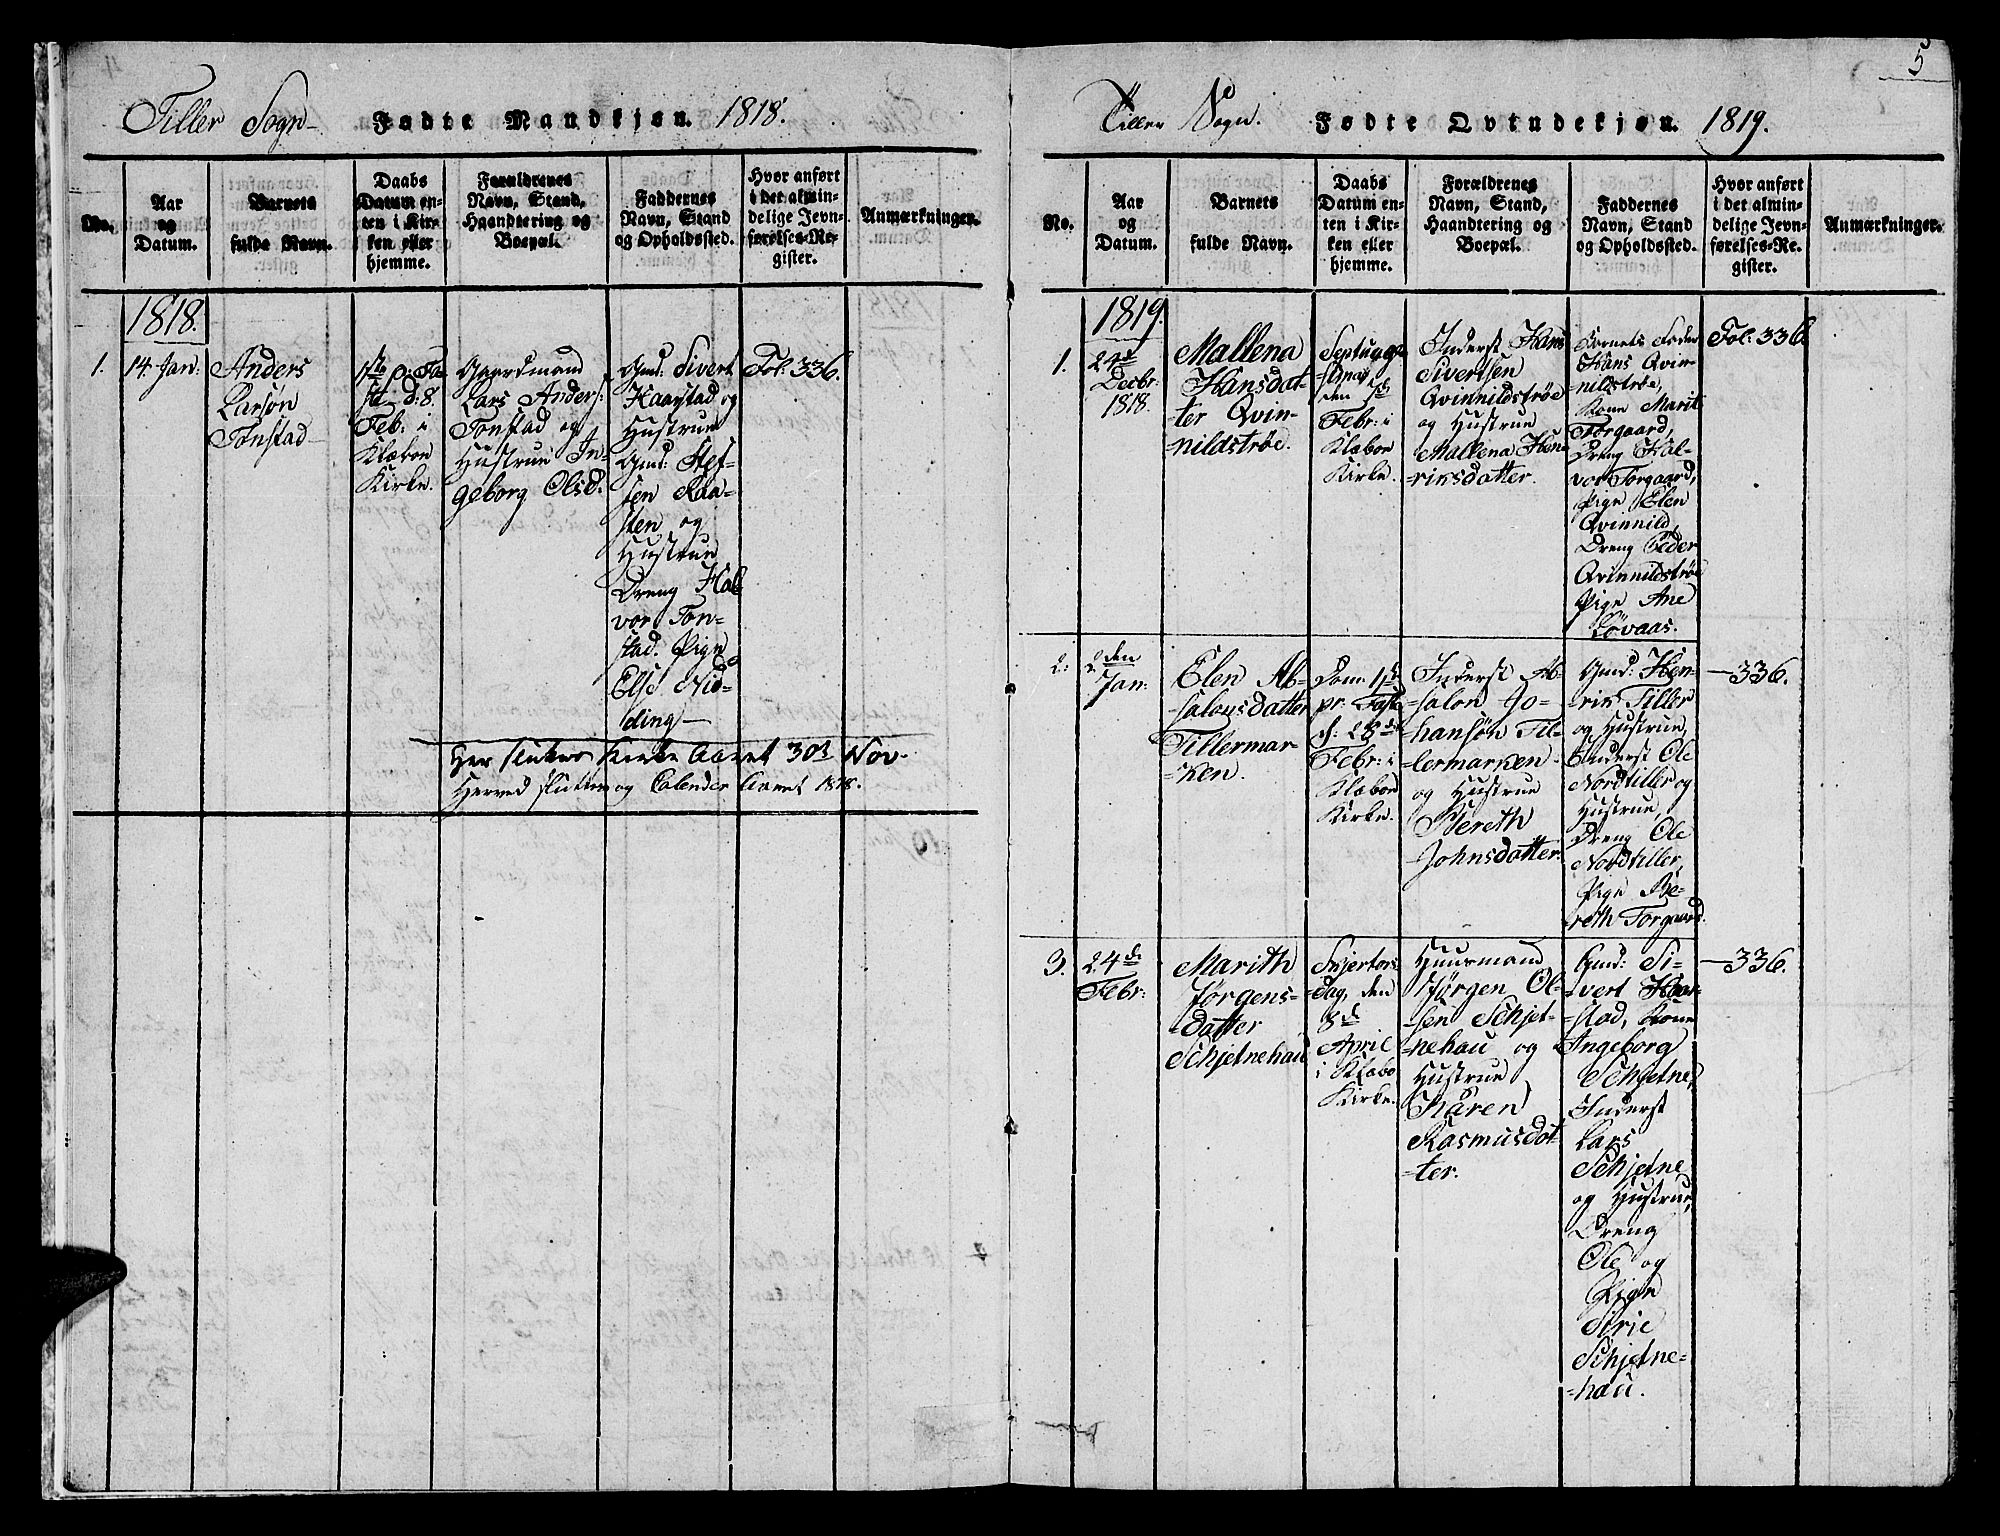 5
Tiller Sogn
Fødte Mandkjøn. 1818.
No.
Aar
og
Datum.
Barnets
fulde Navn.
Daabs
Datum en-
ten i Kir-
ken eller
hjemme.
Forældrenes
Navn, Stand,
Haandtering og
Boepæl.
Faddernes
Navn, Stand
og Opholdssted.
Hvor anført
i det almin-
delige Jevn-
førelses-Re-
gister.
Anmærkninger.
1818.
1.
14 Jan:
Anders
Larsøn
Tonstad
1ste S: Fa-
ste d: 8.
Feb: i
Klæboe
Kirke.
Gaardmand
Lars Anders:
Tonstad og
Hustrue In-
geborg Olsd.
Gmd: Sivert
Haarstad og
Hustrue
Gmd: Stef-
fen Raa-
sten og
Hustrue
Dreng Hal-
vor Ton-
stad. Pige
Else Nid-
ding
Fol: 336.
Her slutter Kirke Aaret 30d Nov.
Herved sluttes og Calender Aaret 1818.
Tiller Sogn.
Fødte Qvindekjøn. 1819.
No.
Aar
og
Datum.
Barnets
fulde Navn.
Daabs
Datum en-
ten i Kir-
ken eller
hjemme.
Forældrenes
Navn, Stand,
Haandtering og
Boepæl.
Faddernes
Navn, Stand
og Opholdssted.
Hvor anført
i det almin-
delige Jevn-
førelses-Re-
gister.
Anmærkninger.
1819.
1.
29d
Decbr:
1818.
Mallena
Hansdat-
ter Qvin-
nildstrøe.
Septuage-
sima
den 7d
Febr: i
Klæboe
Kirke.
Inderst Hans
Sivertsen
Qvinnildstrøe
og Hustrue
Mallena Hen-
=richsdatter.
Barnets Fader
Hans Qvin-
nildstrøe,
Kone Marit
Torgaard,
Dreng Hal-
vor Torgaard,
Pige Elen
Qvinnild,
Dreng Peder
Qvinnildstrøe
Pige Ane
Løvaas.
Fol: 336.
2.
2den
Jan:
Elen Ab-
=salonsdatter
Tillermar-
=ken.
Dom: 1ste
pr: Faste
d: 28de
Febr: i
Klæboe
Kirke.
Inderst Ab-
=salon Jo-
hansøn Til-
lermarken
og Hustrue
Bereth
Johnsdatter.
Gmd: Hen-
rik Tiller
og Hustrue,
Inderst Ole
Nordtiller og
Hustrue,
Dreng Ole
Nordtiller,
Pige Be-
reth Torgaard.
—336.
3.
24de
Febr:
Marith
Jørgens-
=datter
Schjetnehau
Skjertors-
=dag, den
8d
April
i Klæboe
Kirke.
Huusmand
Jørgen Ol-
=sen Schjet-
=nehau og
Hustrue
Karen
Rasmusdat-
=ter.
Gmd: Si-
=vert Haar-
=stad, Kone
Ingeborg
Schjetne,
Inderst
Lars
Schjetne
og Hustrue,
Dreng
Ole og
Pige
Sirie
Schjetne-
=hau.
—336.